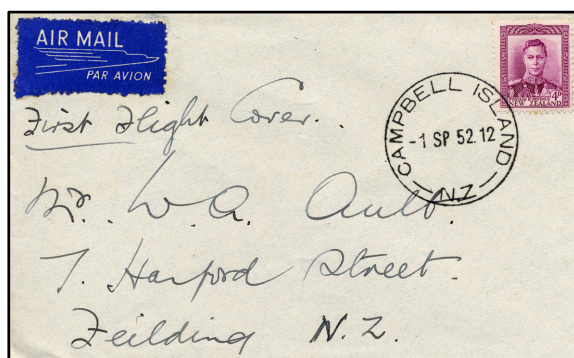 AIR MAIL
PAR AVION
4D
NEW ZEALAND
CAMPBELL ISLAND
-1 SP 52.12
N.Z
First Flight Cover.
Mr. W. A. Ault.
7. Harford Street.
Feilding N.Z.